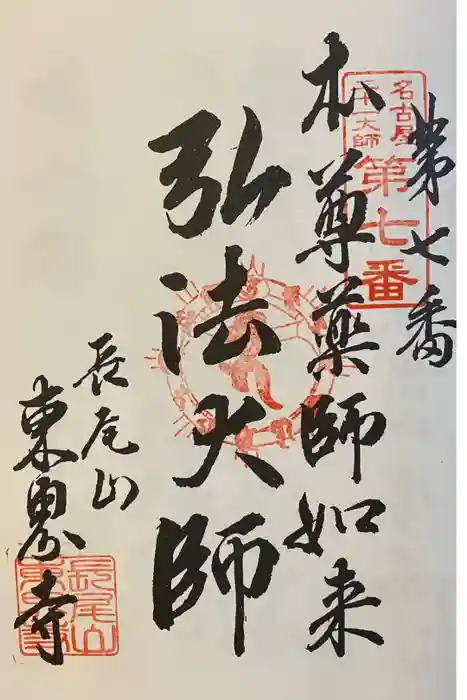 第七番
名古屋
二十一大師
第七番
本尊薬師如来
弘法大師
長尾山
東界寺
長尾山